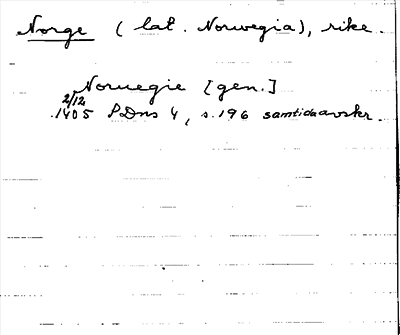 Norge (lat. Norwegia), rike.
Noruegie [gen.]
2/12
1405 SDns 4, s.196 samtida avskr.